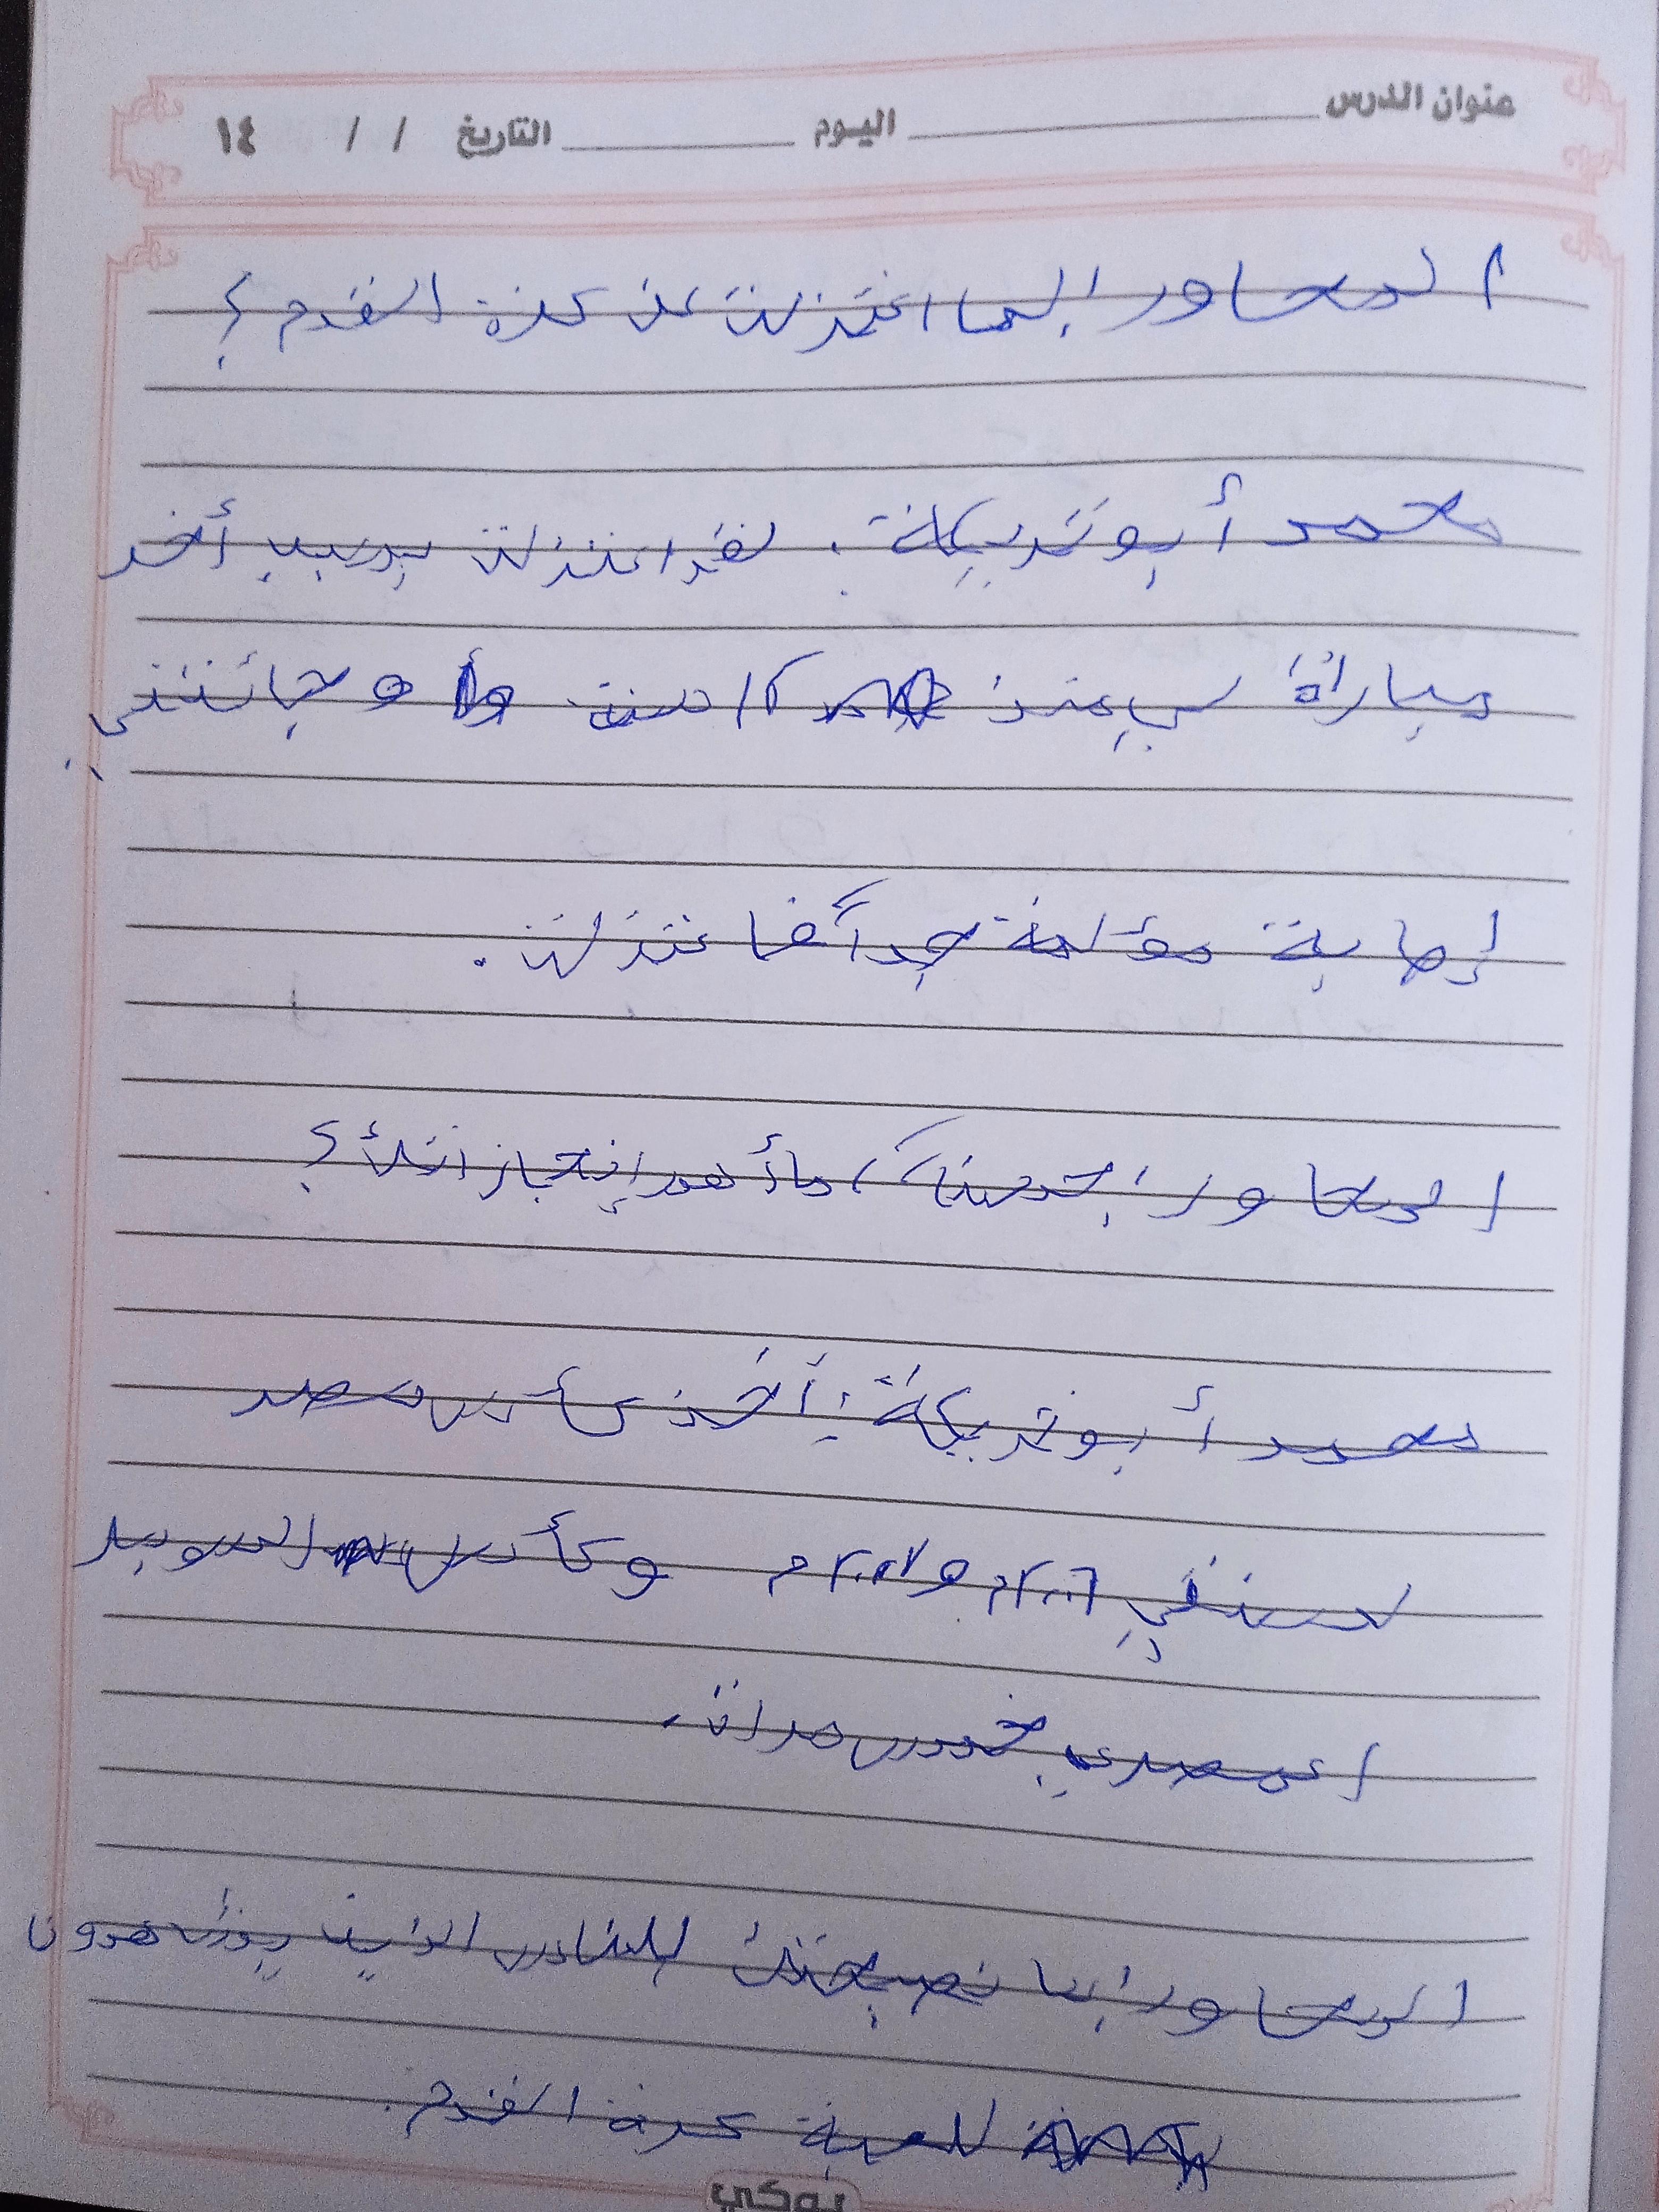 عنوان الدرس اليوم التاريخ / / ١٤
المحاور: لما اعتزلت عن كرة القدم؟
محمد أبو تريكة: لقد اعتزلت بسبب أخر
مباراة لي عندنا سنة و جائتني
إصابة مؤلمة جداً فاعتزلت.
المحاور: حسناً، ما أهم إنجازاتك؟
محمد أبو تريكة: أخذ كأس مصر
لسنتي ٢٠٠٦م و٢٠٠٧م وكأس السوبر
المصري خمس مرات.
المحاور: ما نصيحتك للناس الذين يشاهدون
للعبة كرة القدم.
يوكي